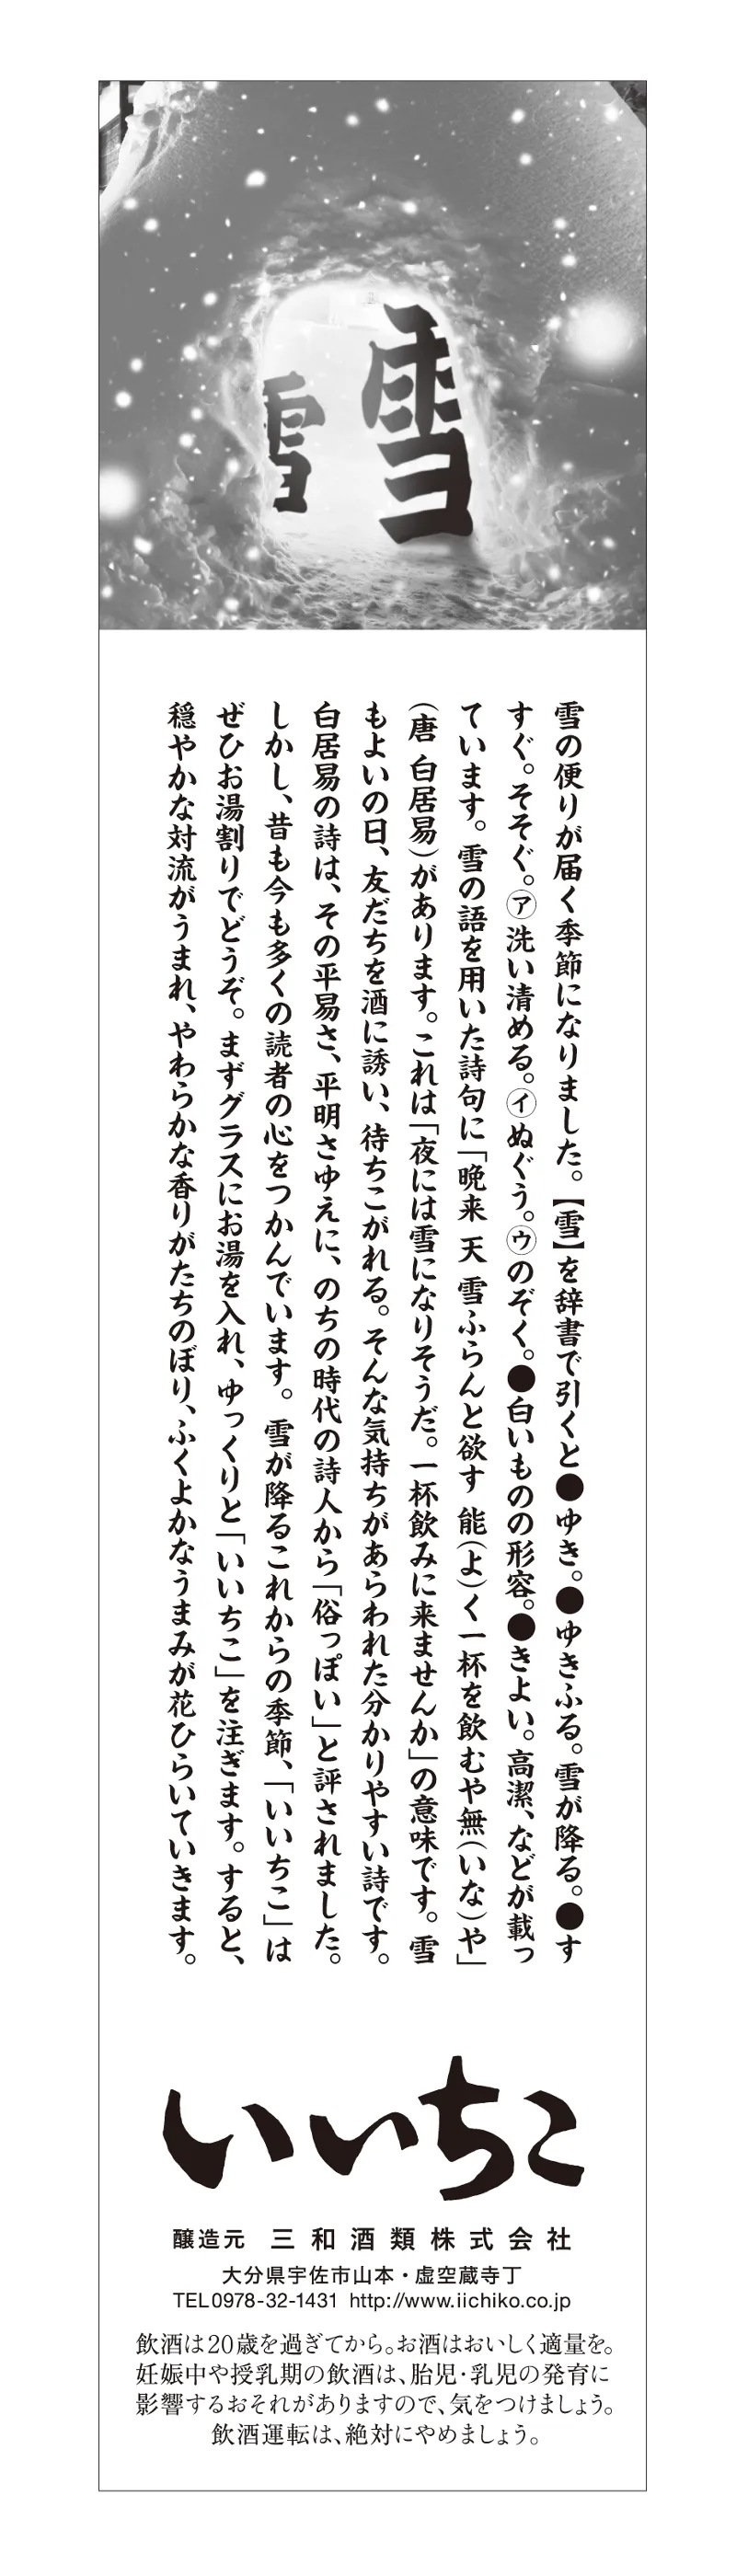 雪
雪
雪の便りが届く季節になりました。【雪】を辞書で引くと●ゆき。●ゆきふる。雪が降る。●す
すぐ。そそぐ。㋐洗い清める。㋑ぬぐう。㋒のぞく。●白いものの形容。●きよい。高潔、などが載っ
ています。雪の語を用いた詩句に「晩来 天 雪ふらんと欲す 能(よ)く一杯を飲むや無(いな)や」
(唐 白居易)があります。これは「夜には雪になりそうだ。一杯飲みに来ませんか」の意味です。雪
もよいの日、友だちを酒に誘い、待ちこがれる。そんな気持ちがあらわれた分かりやすい詩です。
白居易の詩は、その平易さ、平明さゆえに、のちの時代の詩人から「俗っぽい」と評されました。
しかし、昔も今も多くの読者の心をつかんでいます。雪が降るこれからの季節、「いいちこ」は
ぜひお湯割りでどうぞ。まずグラスにお湯を入れ、ゆっくりと「いいちこ」を注ぎます。すると、
穏やかな対流がうまれ、やわらかな香りがたちのぼり、ふくよかなうまみが花ひらいていきます。
いいちこ
醸造元 三和酒類株式会社
大分県宇佐市山本・虚空蔵寺丁
TEL0978-32-1431 http://www.iichiko.co.jp
飲酒は20歳を過ぎてから。お酒はおいしく適量を。
妊娠中や授乳期の飲酒は、胎児・乳児の発育に
影響するおそれがありますので、気をつけましょう。
飲酒運転は、絶対にやめましょう。